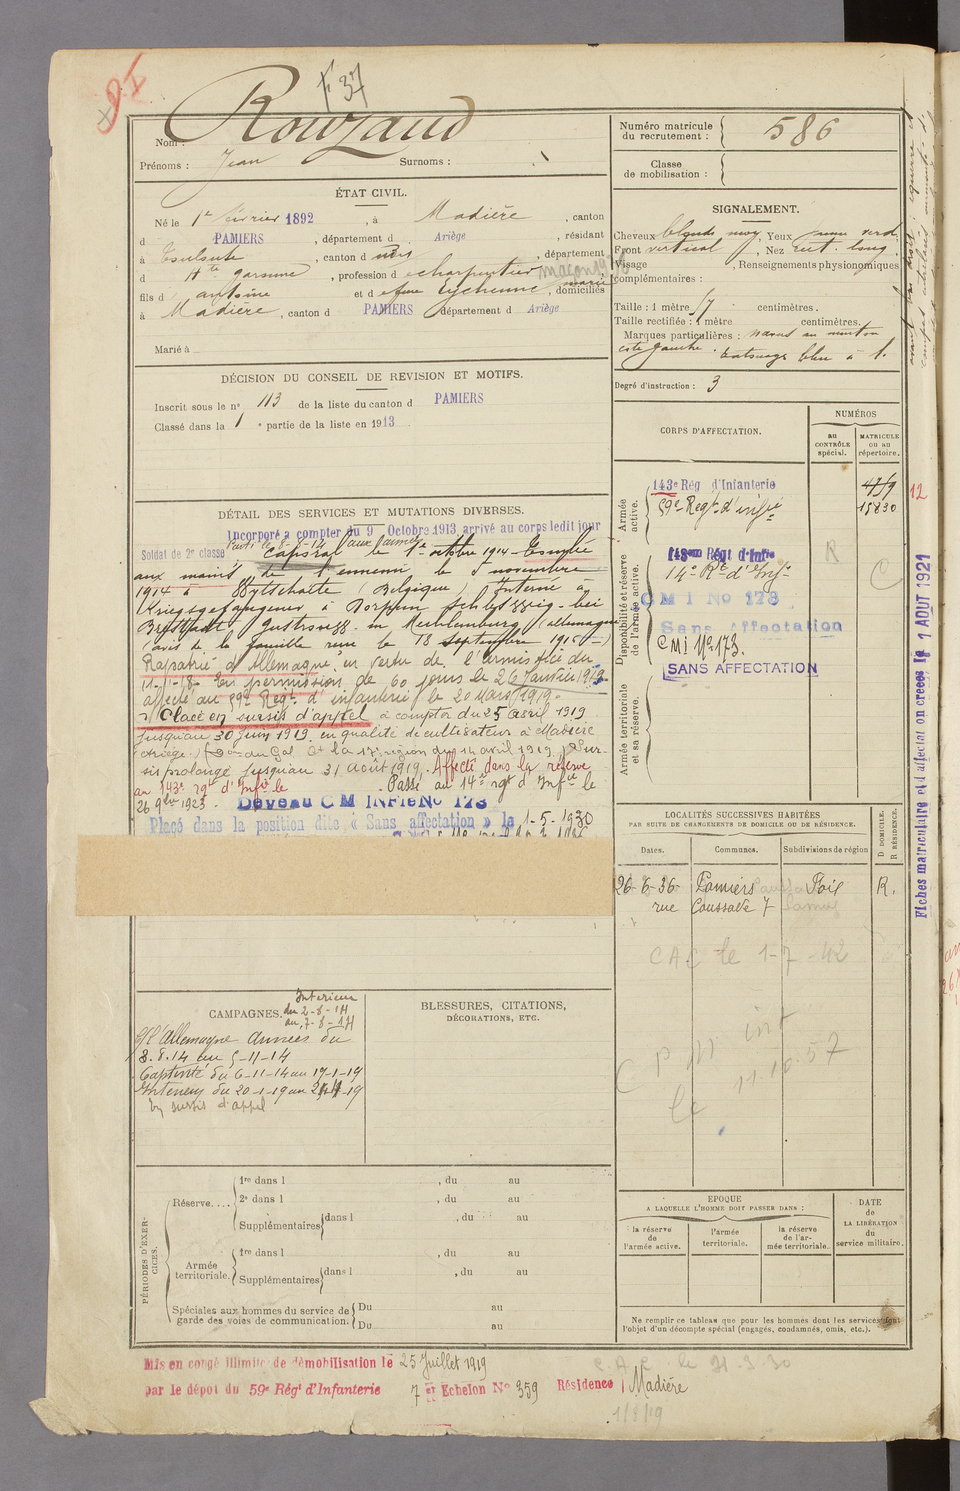 F 37
Nom : Rouzaud
Prénoms : Jean Surnoms :
ÉTAT CIVIL.
Né le 1er février 1892, à Madière, canton
d PAMIERS, département d Ariège, résidant
à Toulouse, canton d udis, département
d Hte garonne, profession de charpentier maçon
fils d antoine et de feue Eychenne, domiciliés
à Madière, canton d PAMIERS département d Ariège
Marié à
DÉCISION DU CONSEIL DE REVISION ET MOTIFS.
Inscrit sous le no 113 de la liste du canton d PAMIERS
Classé dans la 1e partie de la liste en 1913
DÉTAIL DES SERVICES ET MUTATIONS DIVERSES.
Incorporé a compter du 9 Octobre 1913 arrivé au corps ledit jour
Soldat de 2e classe Parti le 8-8-14 aux armées
Caporal le 1er octobre 1914 - Tombé
aux mains de l'ennemi le 5 novembre
1914 à Wytschaete (Belgique) Interné à
Kriegsgefangener à
Gustrow in Mecklemburg (allemagne
(avis de la famille reçu le 18 septembre 1915 -)
Rapatrié d'Allemagne en vertu de l'armistice du
11-11-18- En permission de 60 jours le 26 Janvier 1919-
affecté au 59e Regt d'infanterie le 20 Mars 1919-
Placé en sursis d'appel à compter du 25 avril 1919
jusqu'au 30 Juin 1919 en qualité de cultivateur à Madière
(Ariège) (Don du Gal Ct la 17e région du 14 avril 1919) Sur-
sis prolongé jusqu'au 31 Août 1919. Affecté dans la réserve
au 143e rgt d'Infie le Passé au 14e rgt d'Infie le
26 9bre 1923 - Devenu C M INFIE No 173
Placé dans la position dite « Sans affectation » le 1-5-1930
CAMPAGNES. Intérieur
du 2-8-14
au 7-8-14
c/ l'Allemagne Années du
8.8.14 au 5-11-14
Captivité du 6-11-14 au 19-1-19
Intérieur du 20-1-19 au 24-4-19
en sursis d'appel
BLESSURES, CITATIONS,
DÉCORATIONS, ETC.
PÉRIODES D'EXERCICES.
Réserve....
1re dans l , du au
2e dans l , du au
Supplémentaires dans l , du au
Armée
territoriale.
1re dans l , du au
Supplémentaires dans l , du au
Spéciales aux hommes du service de
garde des voies de communication.
Du au
Du au
Mis en congé illimité de démobilisation le 25 Juillet 1919
par le dépot du 59e Régt d'Infanterie 7 et Echelon No 359 Résidence Madière
C.A.R. le 21-3-30
1/8/19
Numéro matricule
du recrutement : 586
Classe
de mobilisation :
SIGNALEMENT.
Cheveux blonds moy, Yeux jaune verd
Front vertical, Nez rect. long
Visage , Renseignements physionomiques
complémentaires :
Taille : 1 mètre 57 centimètres.
Taille rectifiée : 1 mètre centimètres.
Marques particulières : nævus au menton
côté gauche. tatouage bleu à
Degré d'instruction : 3
CORPS D'AFFECTATION.
NUMÉROS
au
CONTRÔLE
spécial.
MATRICULE
ou au
répertoire.
Armée
active.
143e Rég d'Infanterie
59e Regt d'infie
15830
Disponibilité et réserve
de l'armée active.
143eme Régt d'Infie
14e Rt d'Infie
R
C
C M I No 173
Sans Affectation
CMI No 173.
SANS AFFECTATION
Armée territoriale
et sa réserve.
LOCALITÉS SUCCESSIVES HABITÉES
PAR SUITE DE CHANGEMENTS DE DOMICILE OU DE RÉSIDENCE.
Dates.
Communes.
Subdivisions de région
D DOMICILE.
R RÉSIDENCE.
26-6-36- Pamiers Foix R.
rue Coussade 7
CAC le 1-7-42
le 11.10.57
EPOQUE
A LAQUELLE L'HOMME DOIT PASSER DANS :
la réserve
de
l'armée active.
l'armée
territoriale.
la réserve
de l'ar-
mée territoriale.
DATE
de
LA LIBÉRATION
du
service militaire.
Ne remplir ce tableau que pour les hommes dont les services font
l'objet d'un décompte spécial (engagés, condamnés, omis, etc.).
12
Fiches matriculaire et d'affectation créées le 1 AOUT 1921